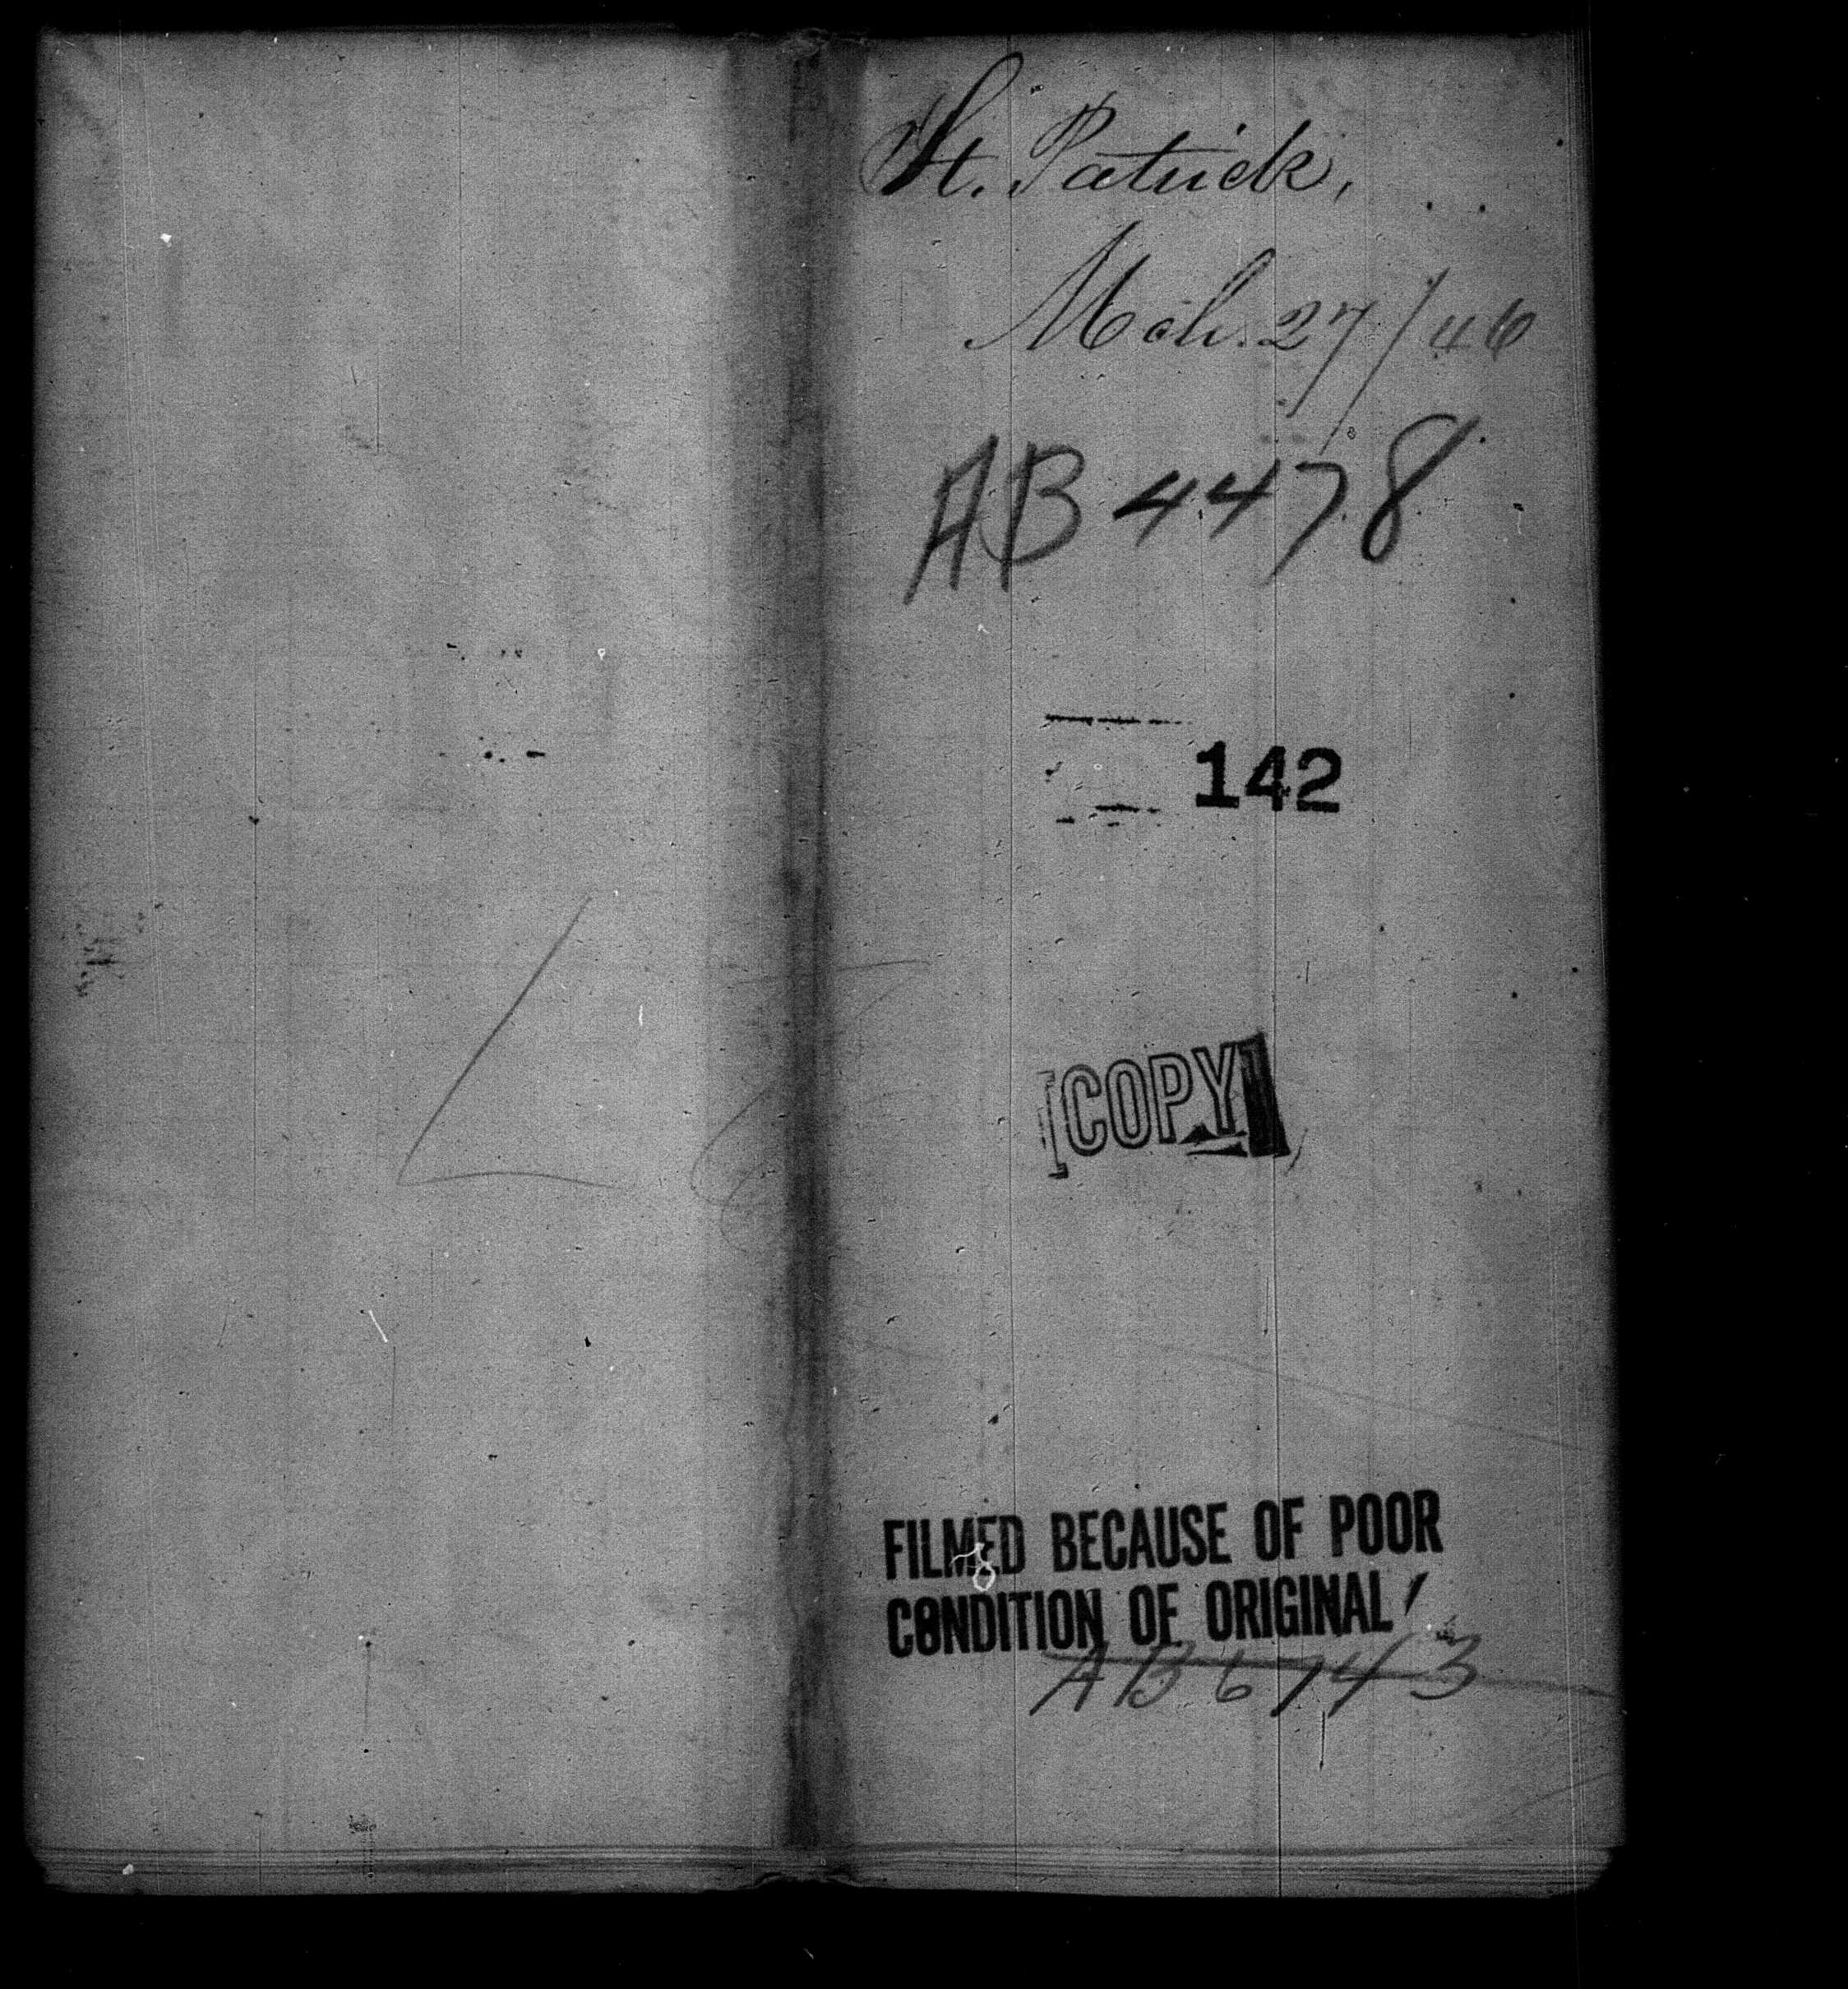 St. Patrick,
Mch. 27/46
AB 4478
142
[COPY]
FILMED BECAUSE OF POOR
CONDITION OF ORIGINAL
AB 6743